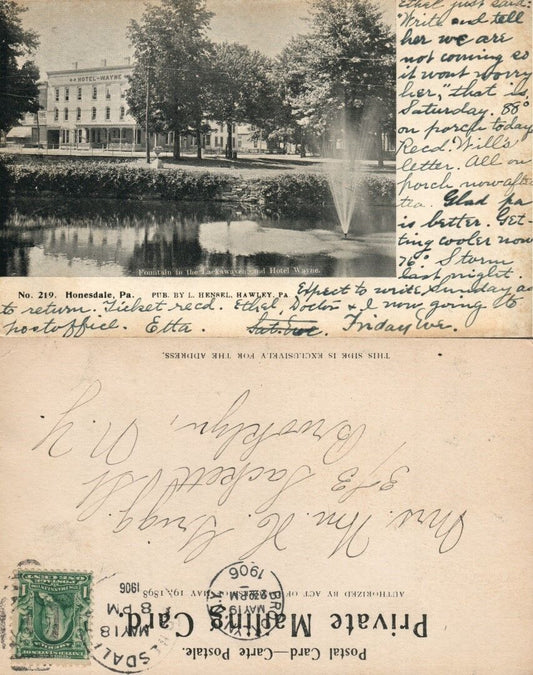 Ethel just said:
"Write and tell
her we are
not coming so
it wont worry
her," that is,
Saturday. 88°
on porch today
Recd. Will's
letter. All on
porch now after
tea. Glad pa
is better. Get-
ting cooler now
76° Storm
last night.
Expect to write Sunday as
to return. Ticket recd. Ethel, Doctor & I now going to
postoffice. Etta. Sat. Eve. Friday Eve.
HOTEL-WAYNE
Fountain in the Lackawaxen and Hotel Wayne.
No. 219. Honesdale, Pa. PUB. BY L. HENSEL, HAWLEY, PA
Postal Card—Carte Postale.
Private Mailing Card.
AUTHORIZED BY ACT OF MAY 19, 1898
Mrs. Wm. H. Grigg
373 Sackett St
Brooklyn,
N.Y
THIS SIDE IS EXCLUSIVELY FOR THE ADDRESS.
MAY 18
8 PM
1906
MAY 19
1906
UNITED STATES
POSTAGE
ONE CENT
1 1